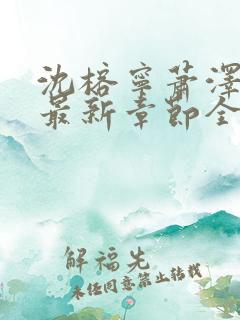 沈榕寧蕭澤
最新章節全
解福先
未经同意禁止转载